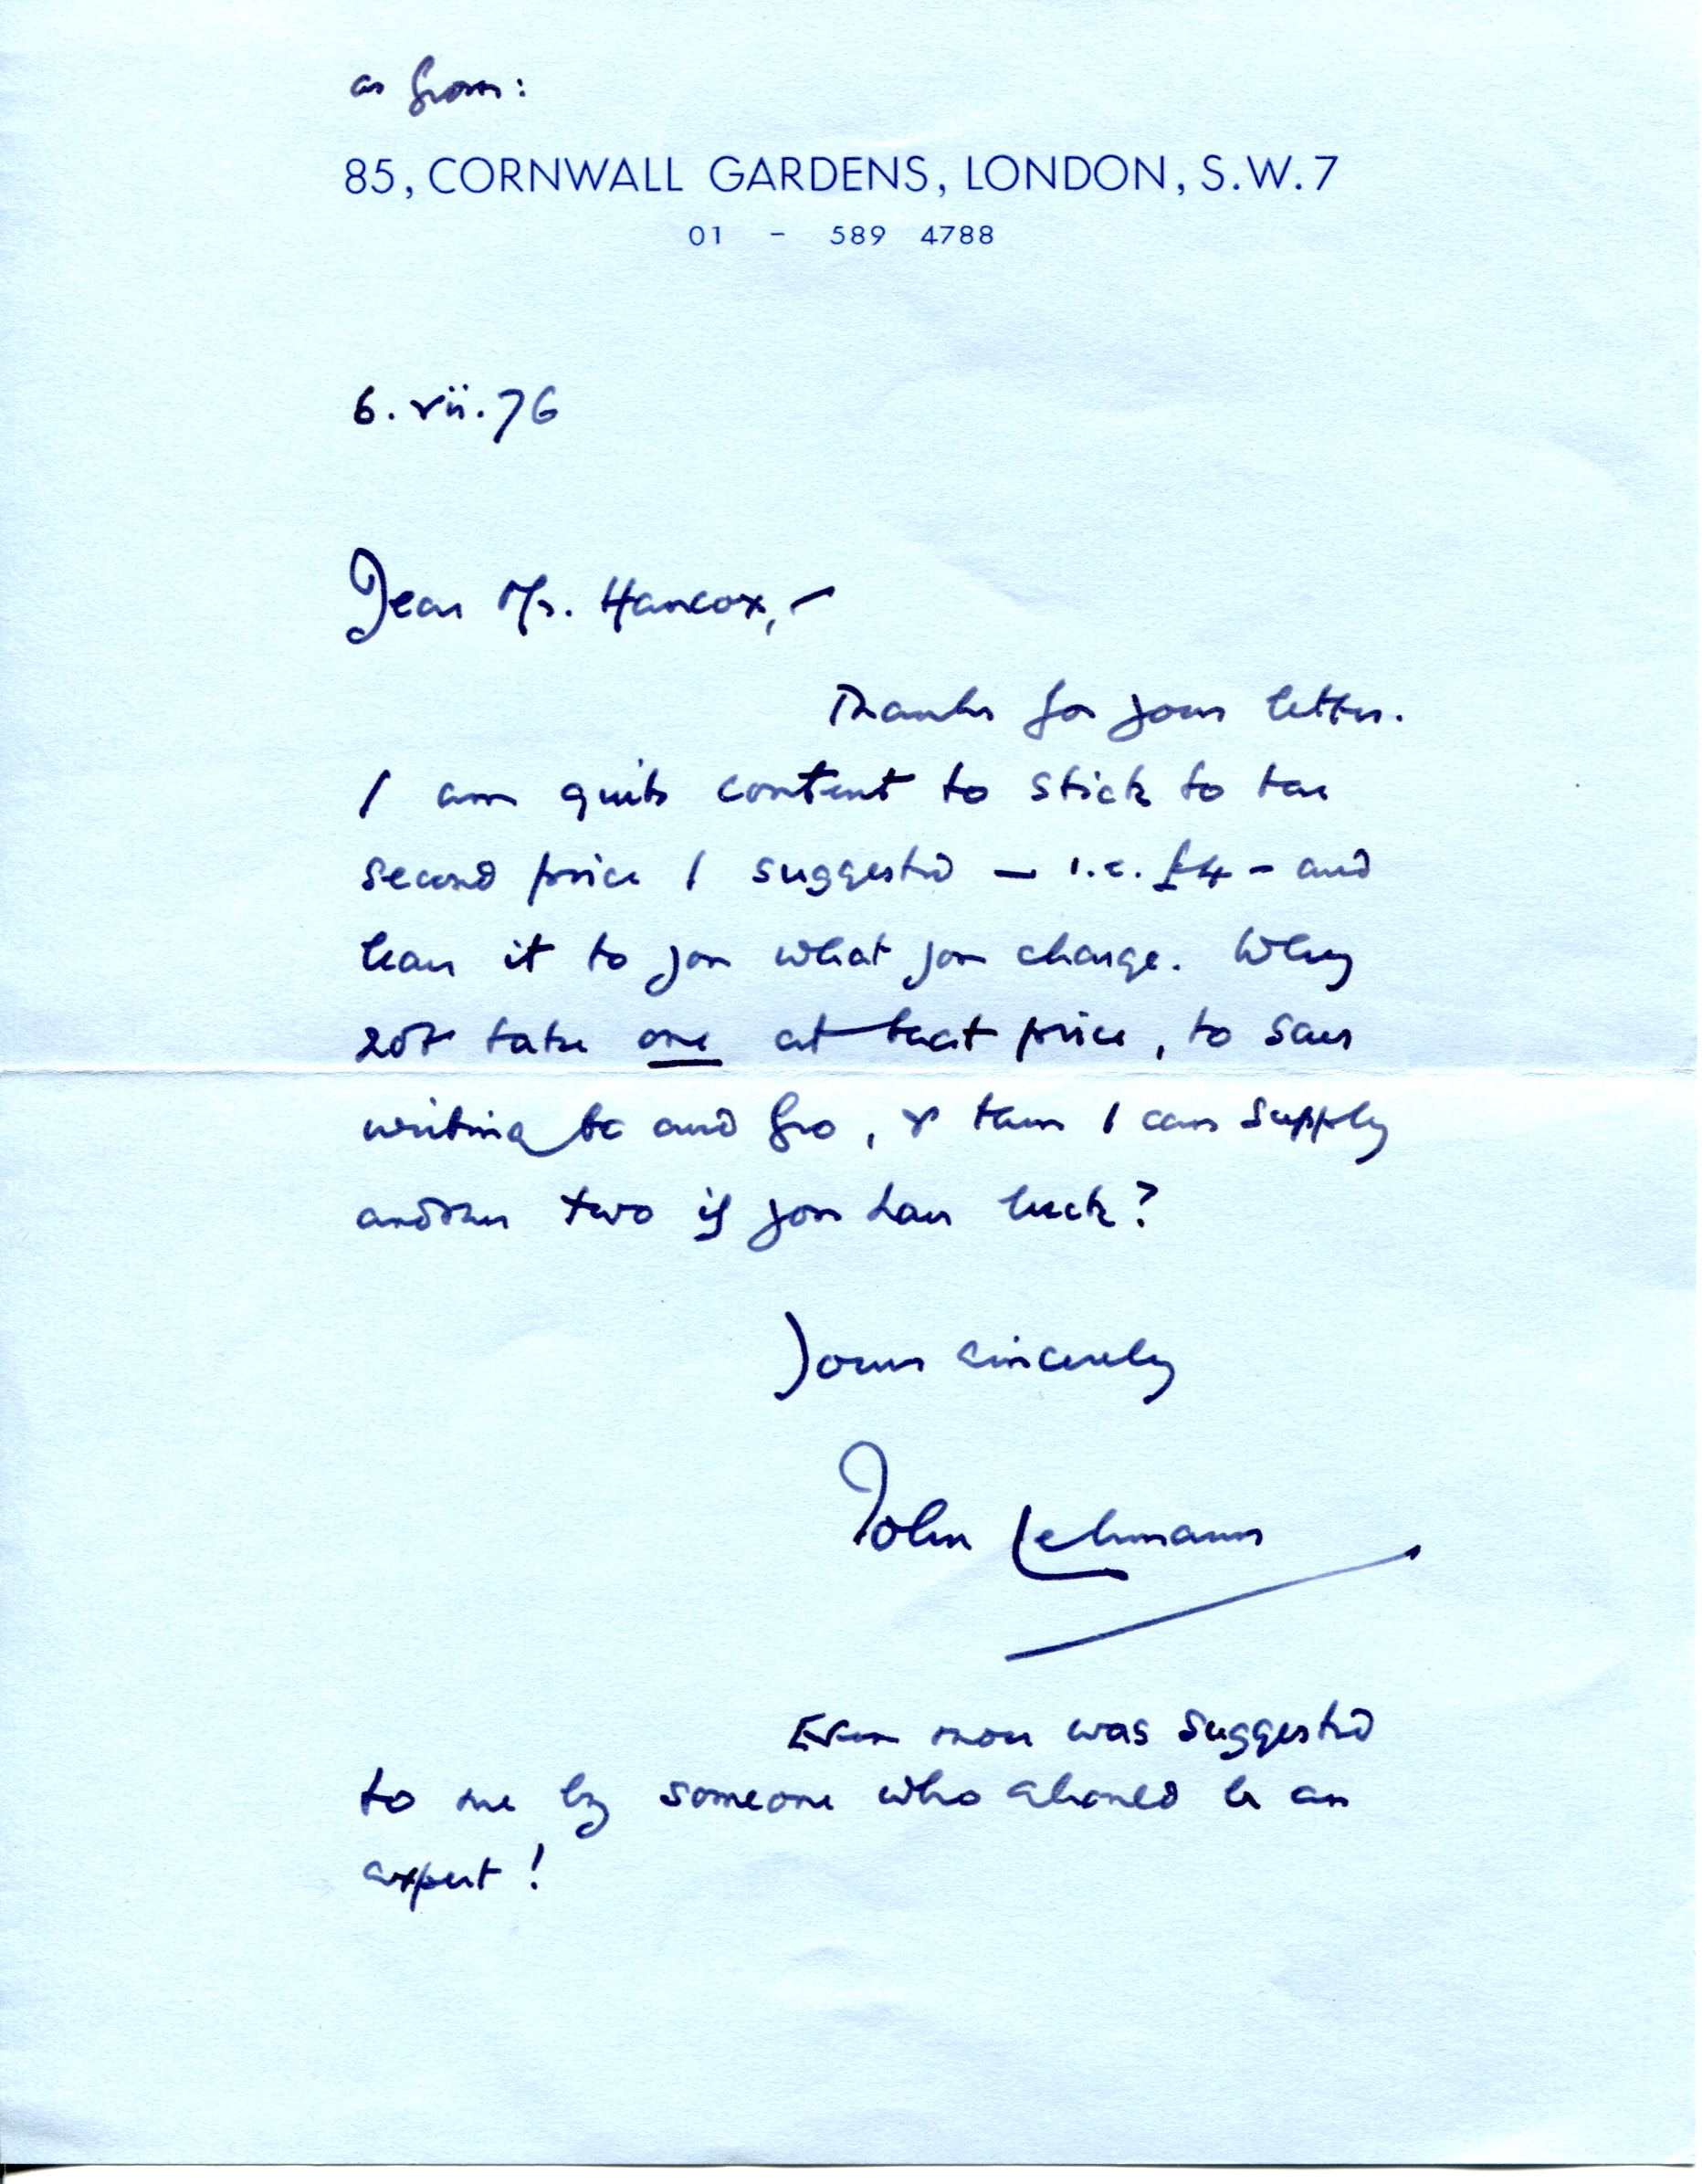 as from:
85, CORNWALL GARDENS, LONDON, S.W.7
01 - 589 4788
6.vii.76
Dear Mr. Hancox, –
Thanks for your letter.
I am quite content to stick to the
second price I suggested – i.e. £4 – and
leave it to you what you charge. Why
not take one at that price, to save
writing to and fro, & then I can supply
another two if you have luck?
Yours sincerely
John Lehmann
Even more was suggested
to me by someone who should be an
expert!